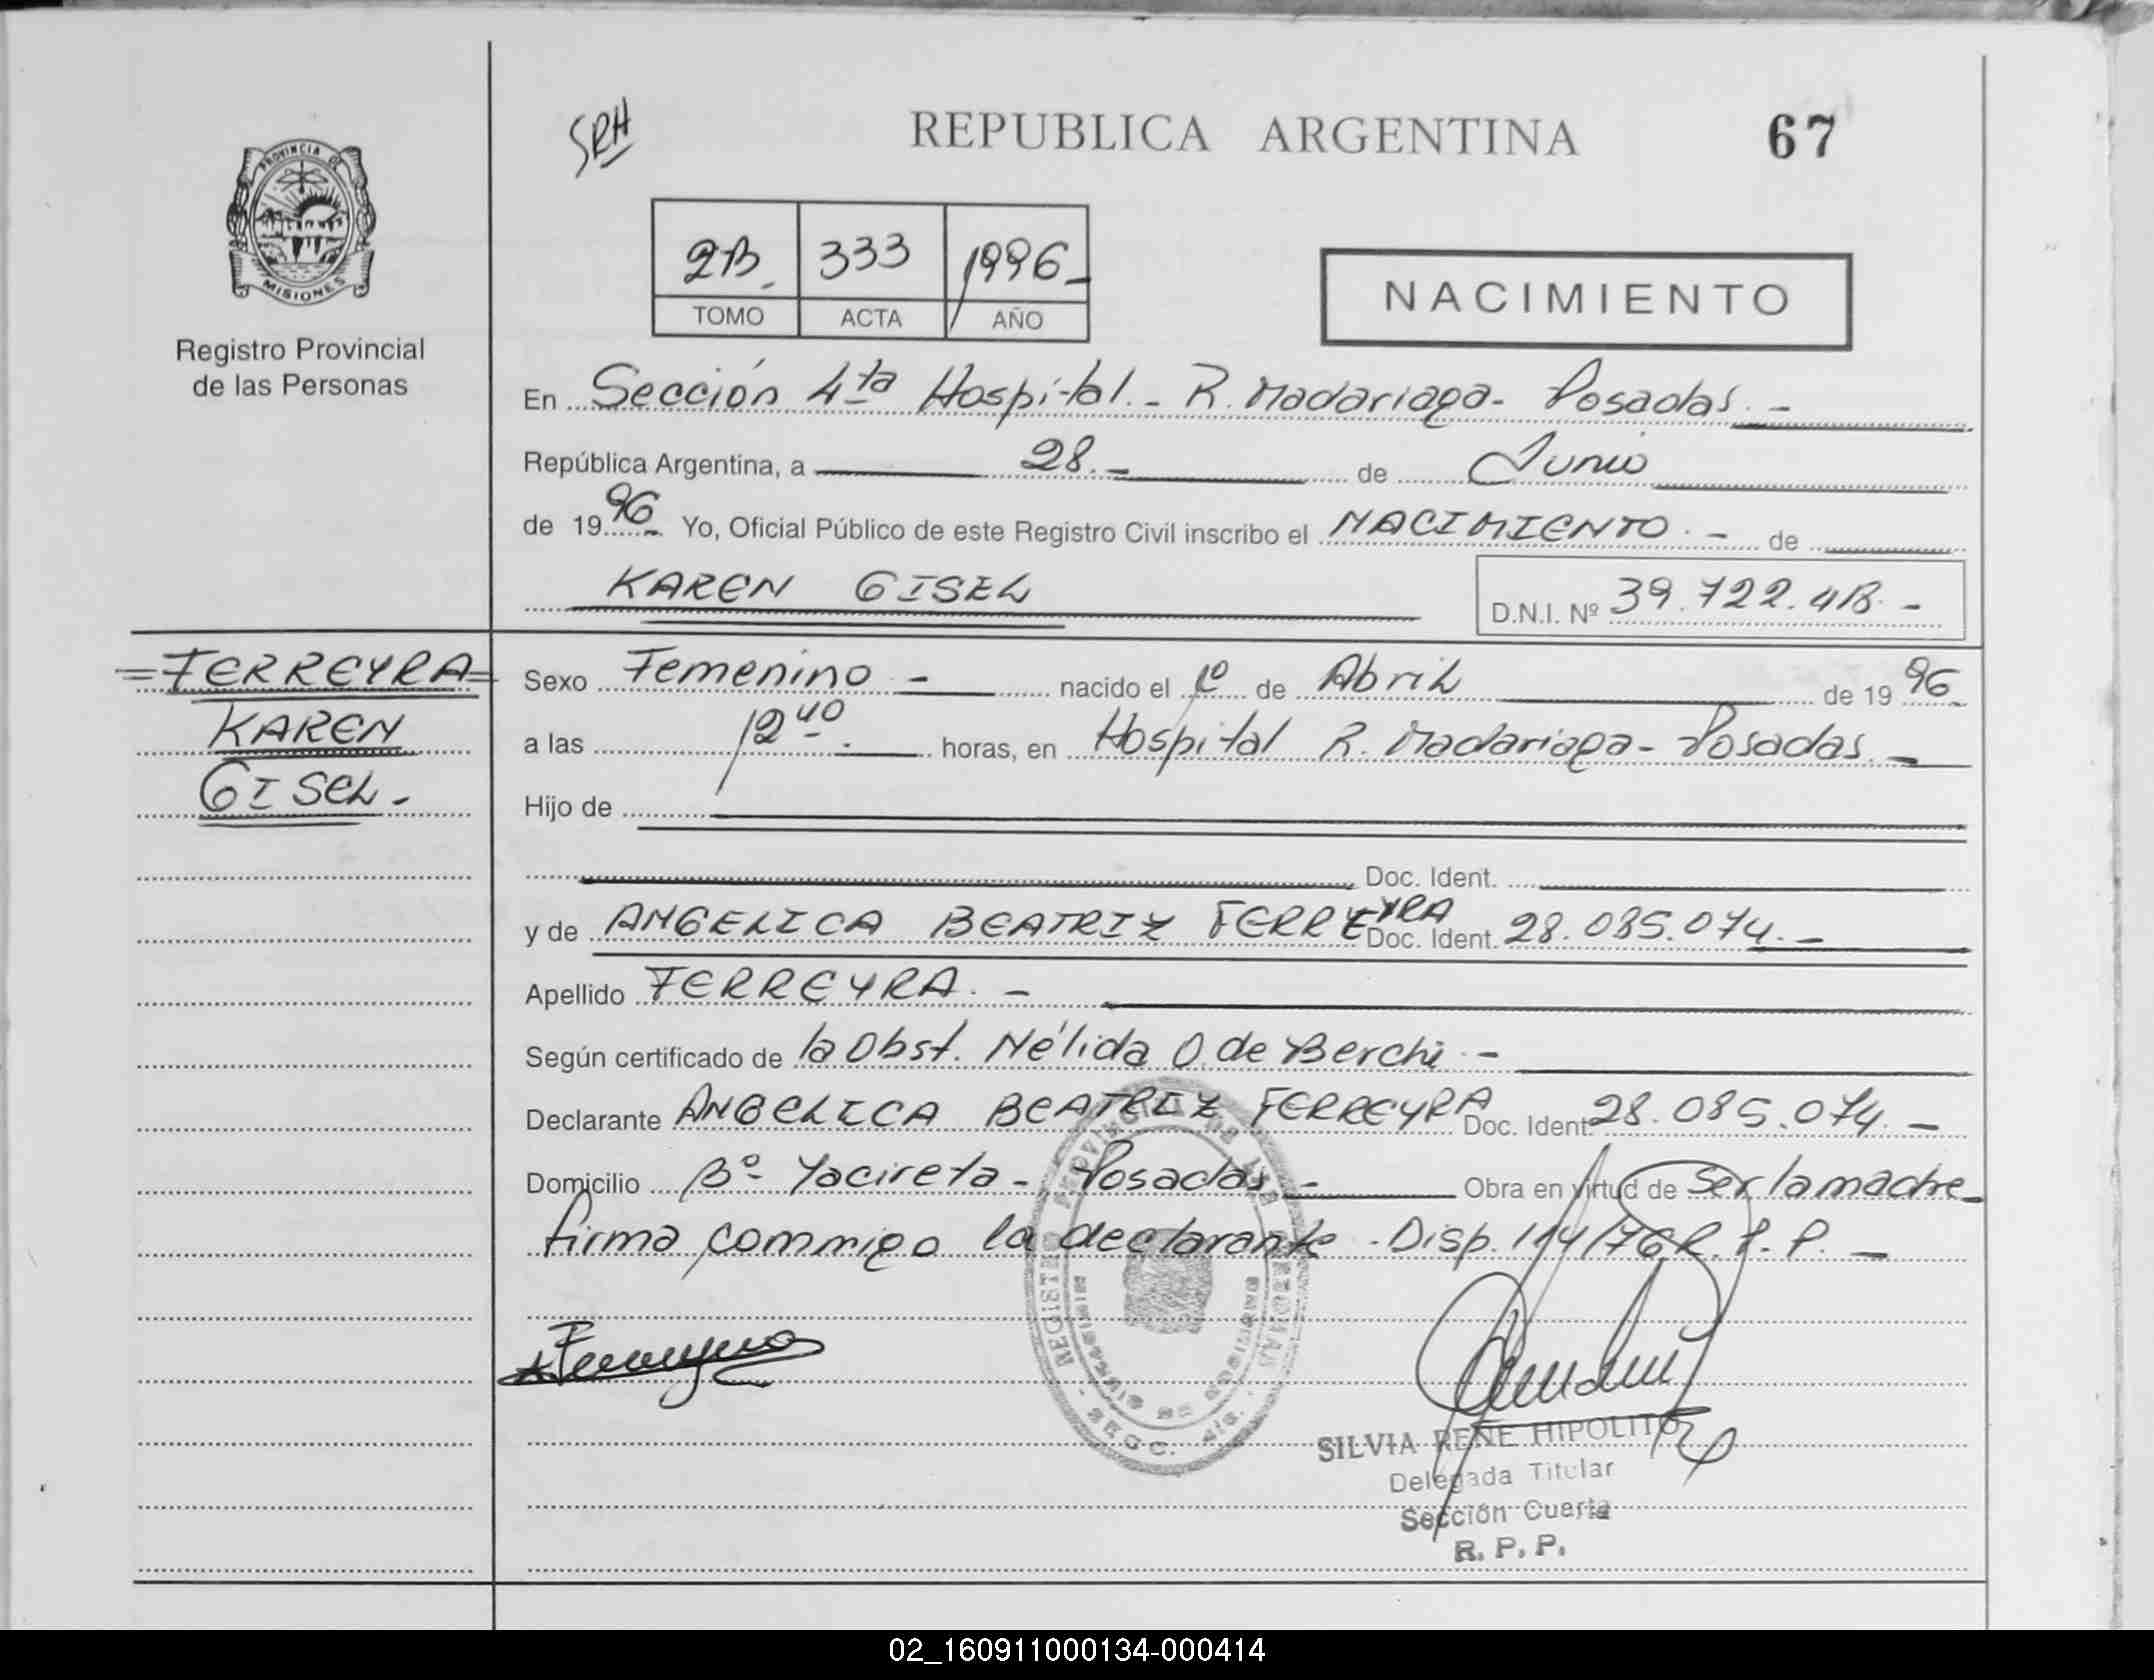 SRH
REPUBLICA ARGENTINA 67
PROVINCIA DE
MISIONES
Registro Provincial
de las Personas
2B. 333 1996-
TOMO ACTA AÑO
NACIMIENTO
En Sección 4ta Hospital.- R. Madariaga- Posadas.-
República Argentina, a 28.- de Junio
de 1996. Yo, Oficial Público de este Registro Civil inscribo el NACIMIENTO.- de
KAREN GISEL D.N.I. Nº 39.722.413.-
=FERREYRA=
KAREN
GISEL.-
Sexo Femenino - nacido el 1º de Abril de 1996
a las 12 40. horas, en Hospital R. Madariaga- Posadas.-
Hijo de
Doc. Ident.
y de ANGELICA BEATRIZ FERREYRA Doc. Ident. 28.085.074.-
Apellido FERREYRA.-
Según certificado de la Obst. Nélida O. de Berchi.-
Declarante ANGELICA BEATRIZ FERREYRA Doc. Ident. 28.085.074.-
Domicilio Bº- Yacireta- Posadas- Obra en virtud de Ser la madre-
firma conmigo la declarante.-Disp. 114/76 R.P.P.-
Ferreyra
SILVIA RENE HIPOLITO
Delegada Titular
Sección Cuarta
R. P. P.
02_160911000134-000414